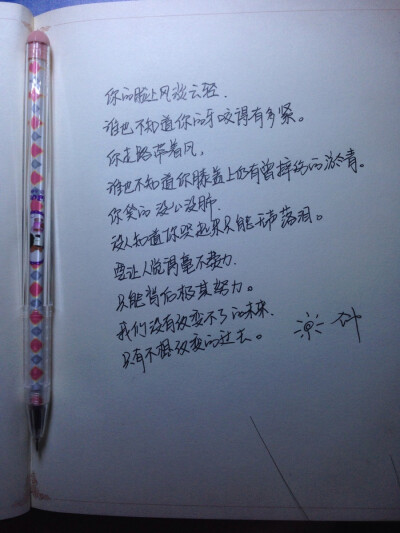 你的脸上风淡云轻.
谁也不知道你的牙咬得有多紧。
你走路带着风,
谁也不知道你膝盖上仍有曾摔的淤青。
你笑的没心没肺.
没人知道你哭起来只能无声落泪。
要让人觉得毫不费力.
只能背后极其努力。
我们没有改变不了的未来.
只有不想改变的过去。